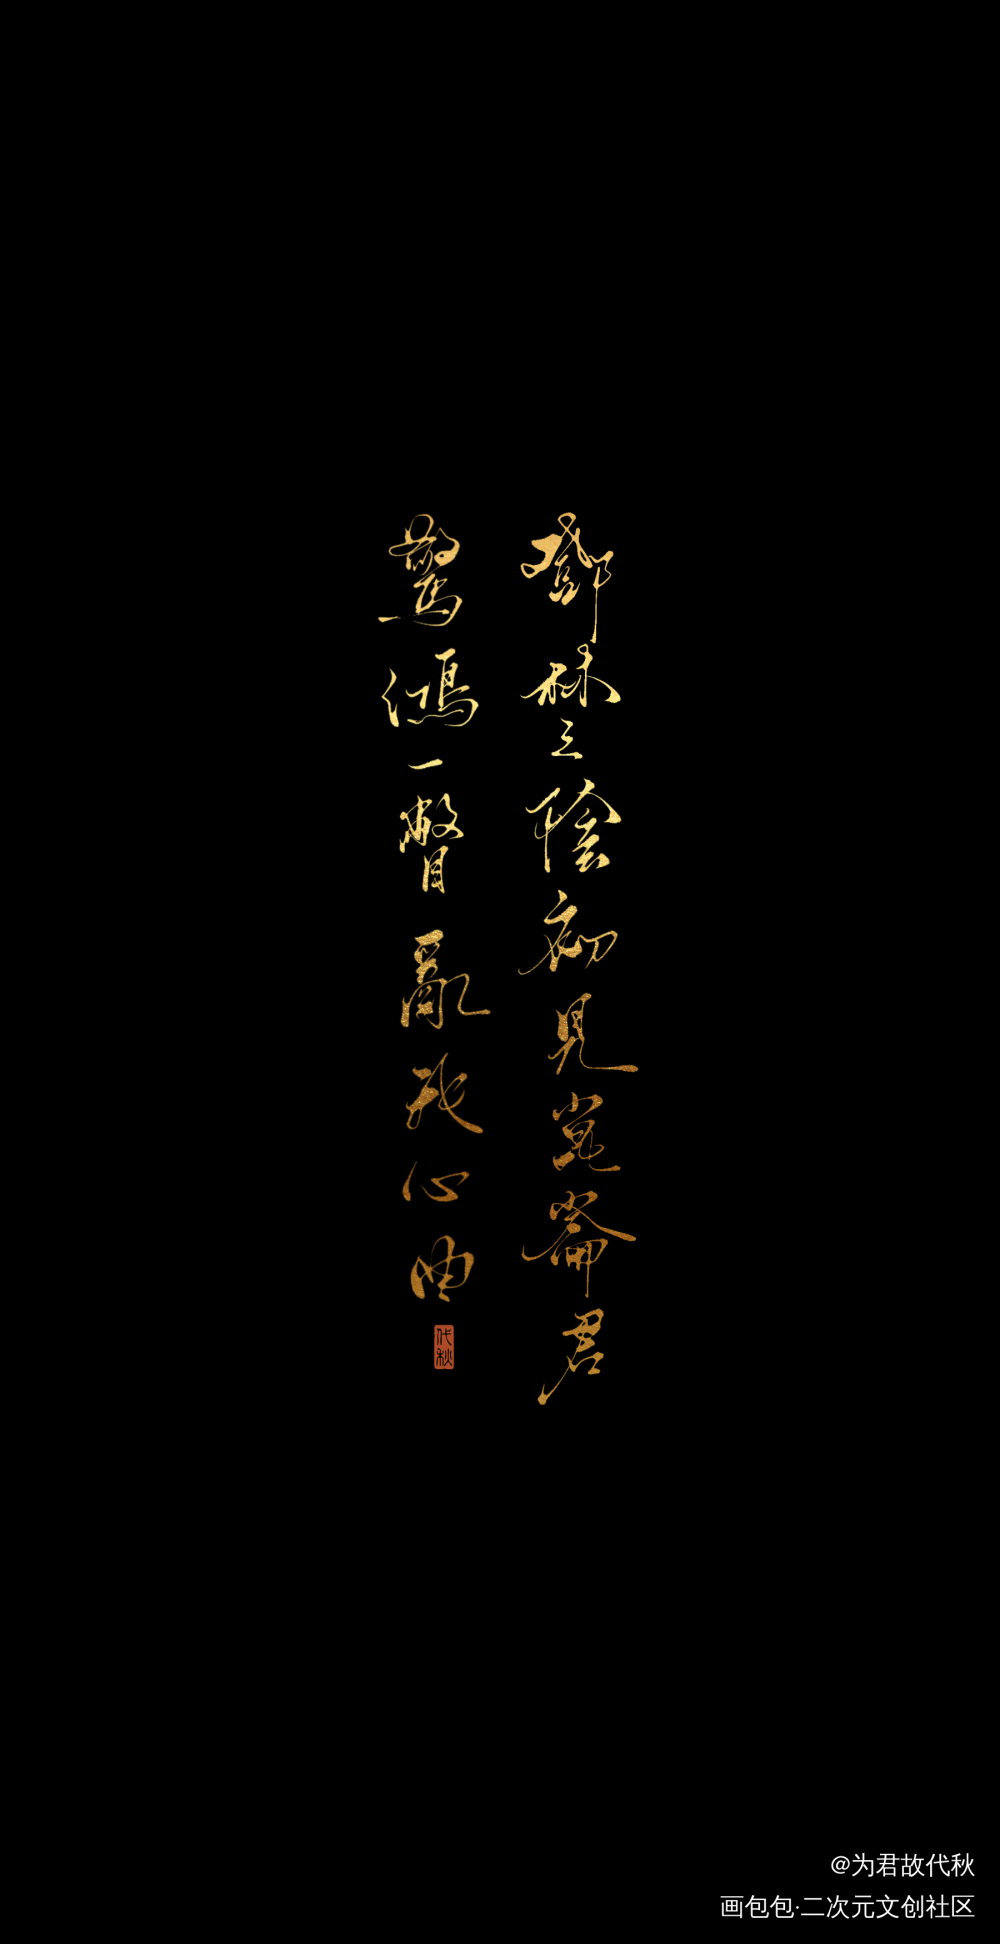 鄧林之陰初見崑崙君
驚鴻一瞥亂我心曲
代秋
@为君故代秋
画包包·二次元文创社区